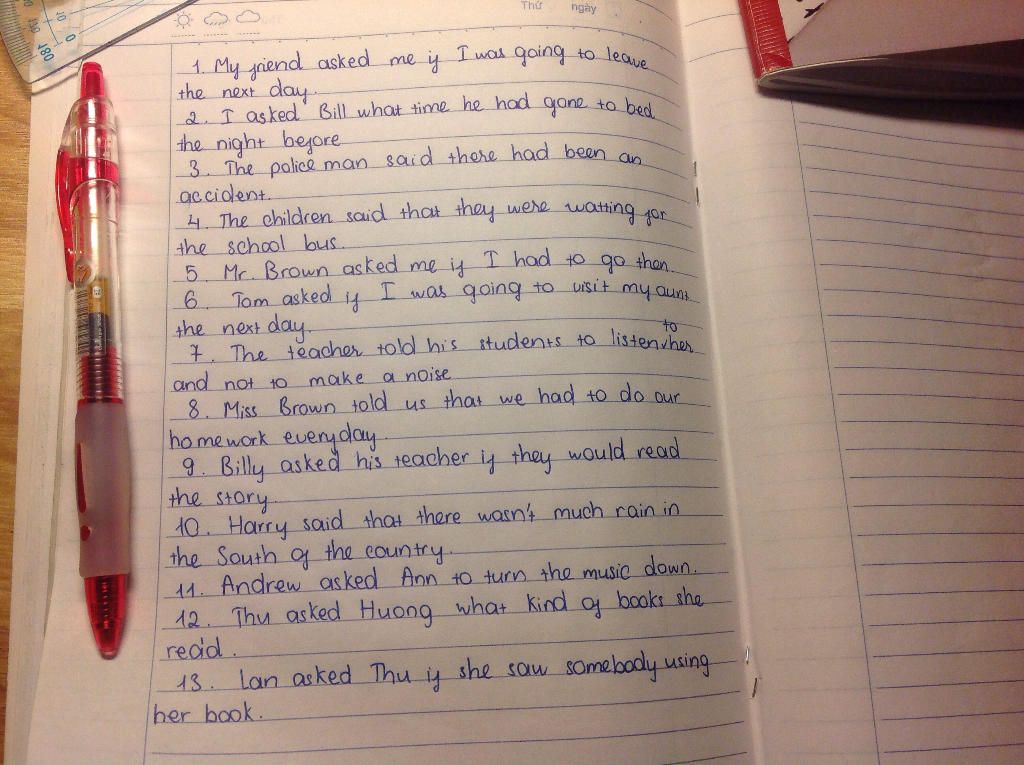 Thứ ngày
1. My friend asked me if I was going to leave
the next day.
2. I asked Bill what time he had gone to bed
the night before
3. The police man said there had been an
accident.
4. The children said that they were waiting for
the school bus.
5. Mr. Brown asked me if I had to go then.
6. Tom asked if I was going to visit my aunt
the next day.
7. The teacher told his students to listen to her
and not to make a noise
8. Miss Brown told us that we had to do our
homework everyday.
9. Billy asked his teacher if they would read
the story.
10. Harry said that there wasn't much rain in
the South of the country.
11. Andrew asked Ann to turn the music down.
12. Thu asked Huong what kind of books she
read.
13. Lan asked Thu if she saw somebody using
her book.
180
0
10